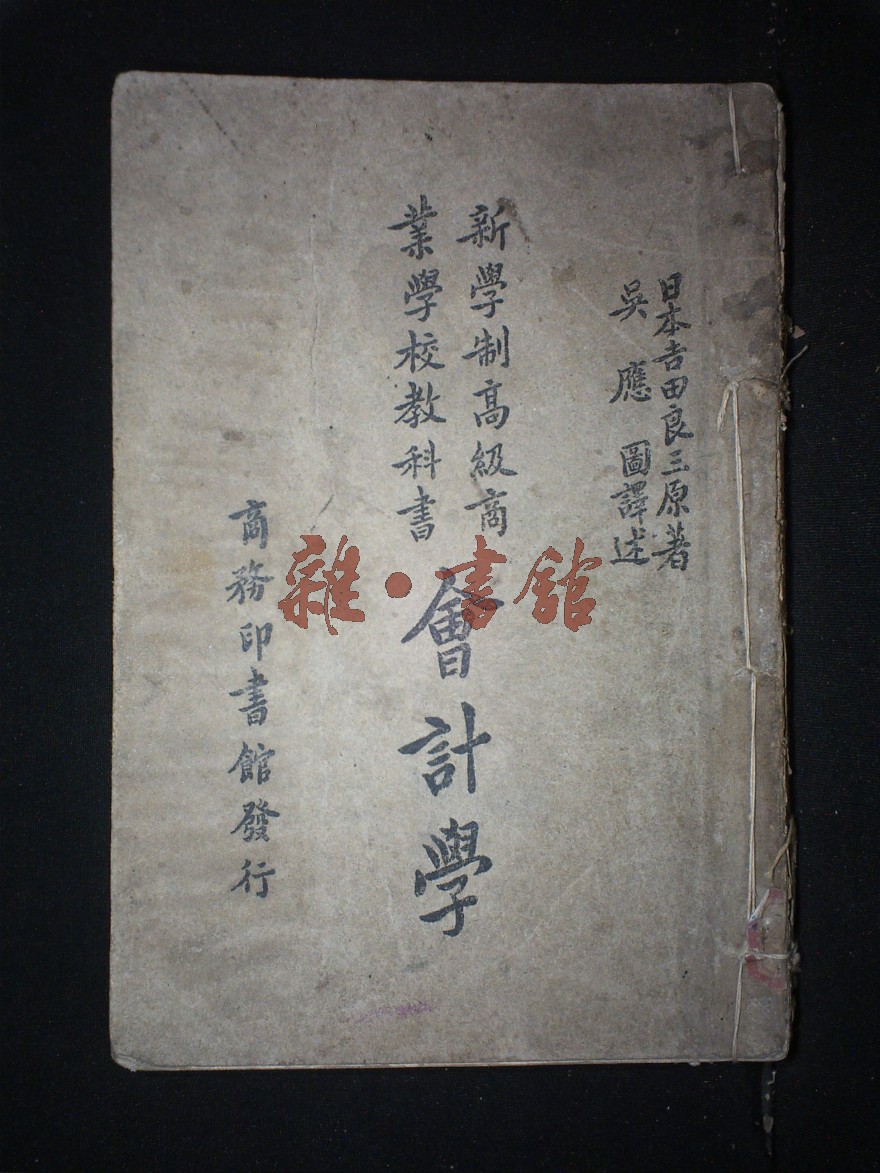 日本吉田良三原著
吳應圖譯述
新學制高級商
業學校教科書
會計學
商務印書館發行
雜·書館